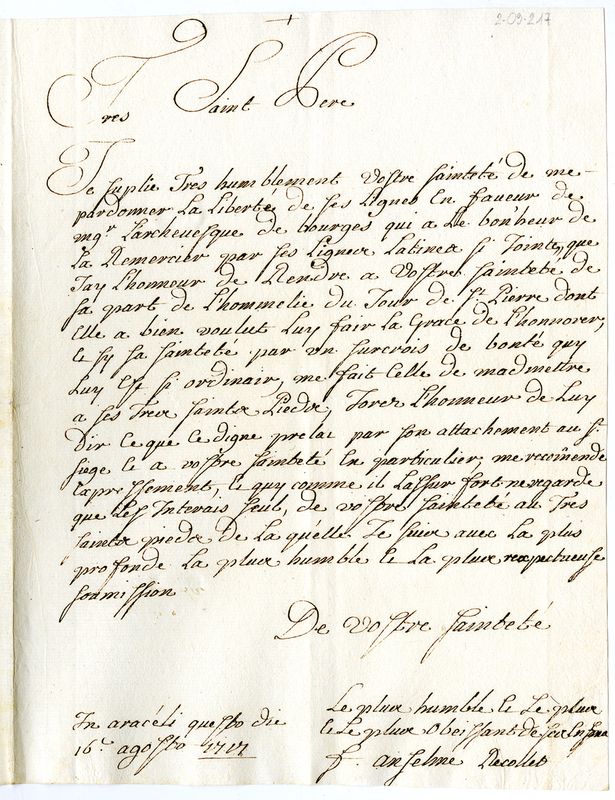 2-09-217
Tres Saint Pere
Je suplie Tres humblement Vostre sainteté de me
pardonner La Liberté de ses Lignes En faveur de
mgr Larchevesque de bourges qui a Le bonheur de
La Remercier par ses Lignes Latines si Jointe, que
Jay L'honneur de Rendre a Vostre sainteté de
sa part de L'hommelie du Jour de St Pierre dont
Elle a bien voulut Luy fair La Grace de L'honnorer,
et sy sa sainteté par un surcrois de bonté quy
Luy Est si ordinair, me fait Celle de madmettre
a ses Tres saints Pieds, Jorez L'honneur de Luy
Dir Ce que Ce digne prelat par son attachement au St
siege et a vostre sainteté En particulier, me recomende
Expressement, et quy comme il Lassur fort ne regarde
que Les Interais seul, de vostre sainteté au Tres
saints pieds de La quelle Je suis avec La plus
profonde La plus humble et La plus respectueuse
soumission
De vostre sainteté
Le plus humble et Le plus
et Le plus Obeissant de ses
In aracéli questo die
16e agosto 1717
f. anselme Recollet